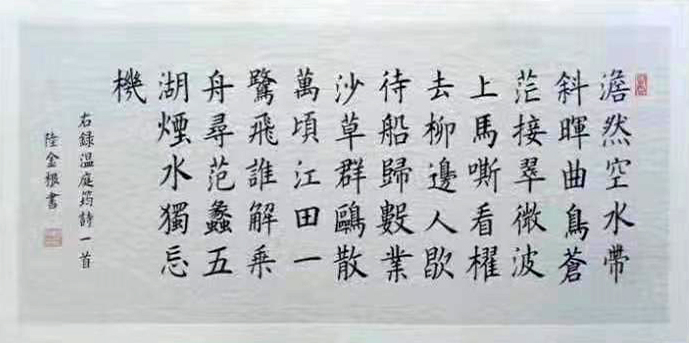 澹然空水帶
斜暉曲島蒼
茫接翠微波
上馬嘶看櫂
去柳邊人歇
待船歸數業
沙草群鷗散
萬頃江田一
鷺飛誰解乘
舟尋范蠡五
湖煙水獨忘
機
右録温庭筠詩一首
陸金根書